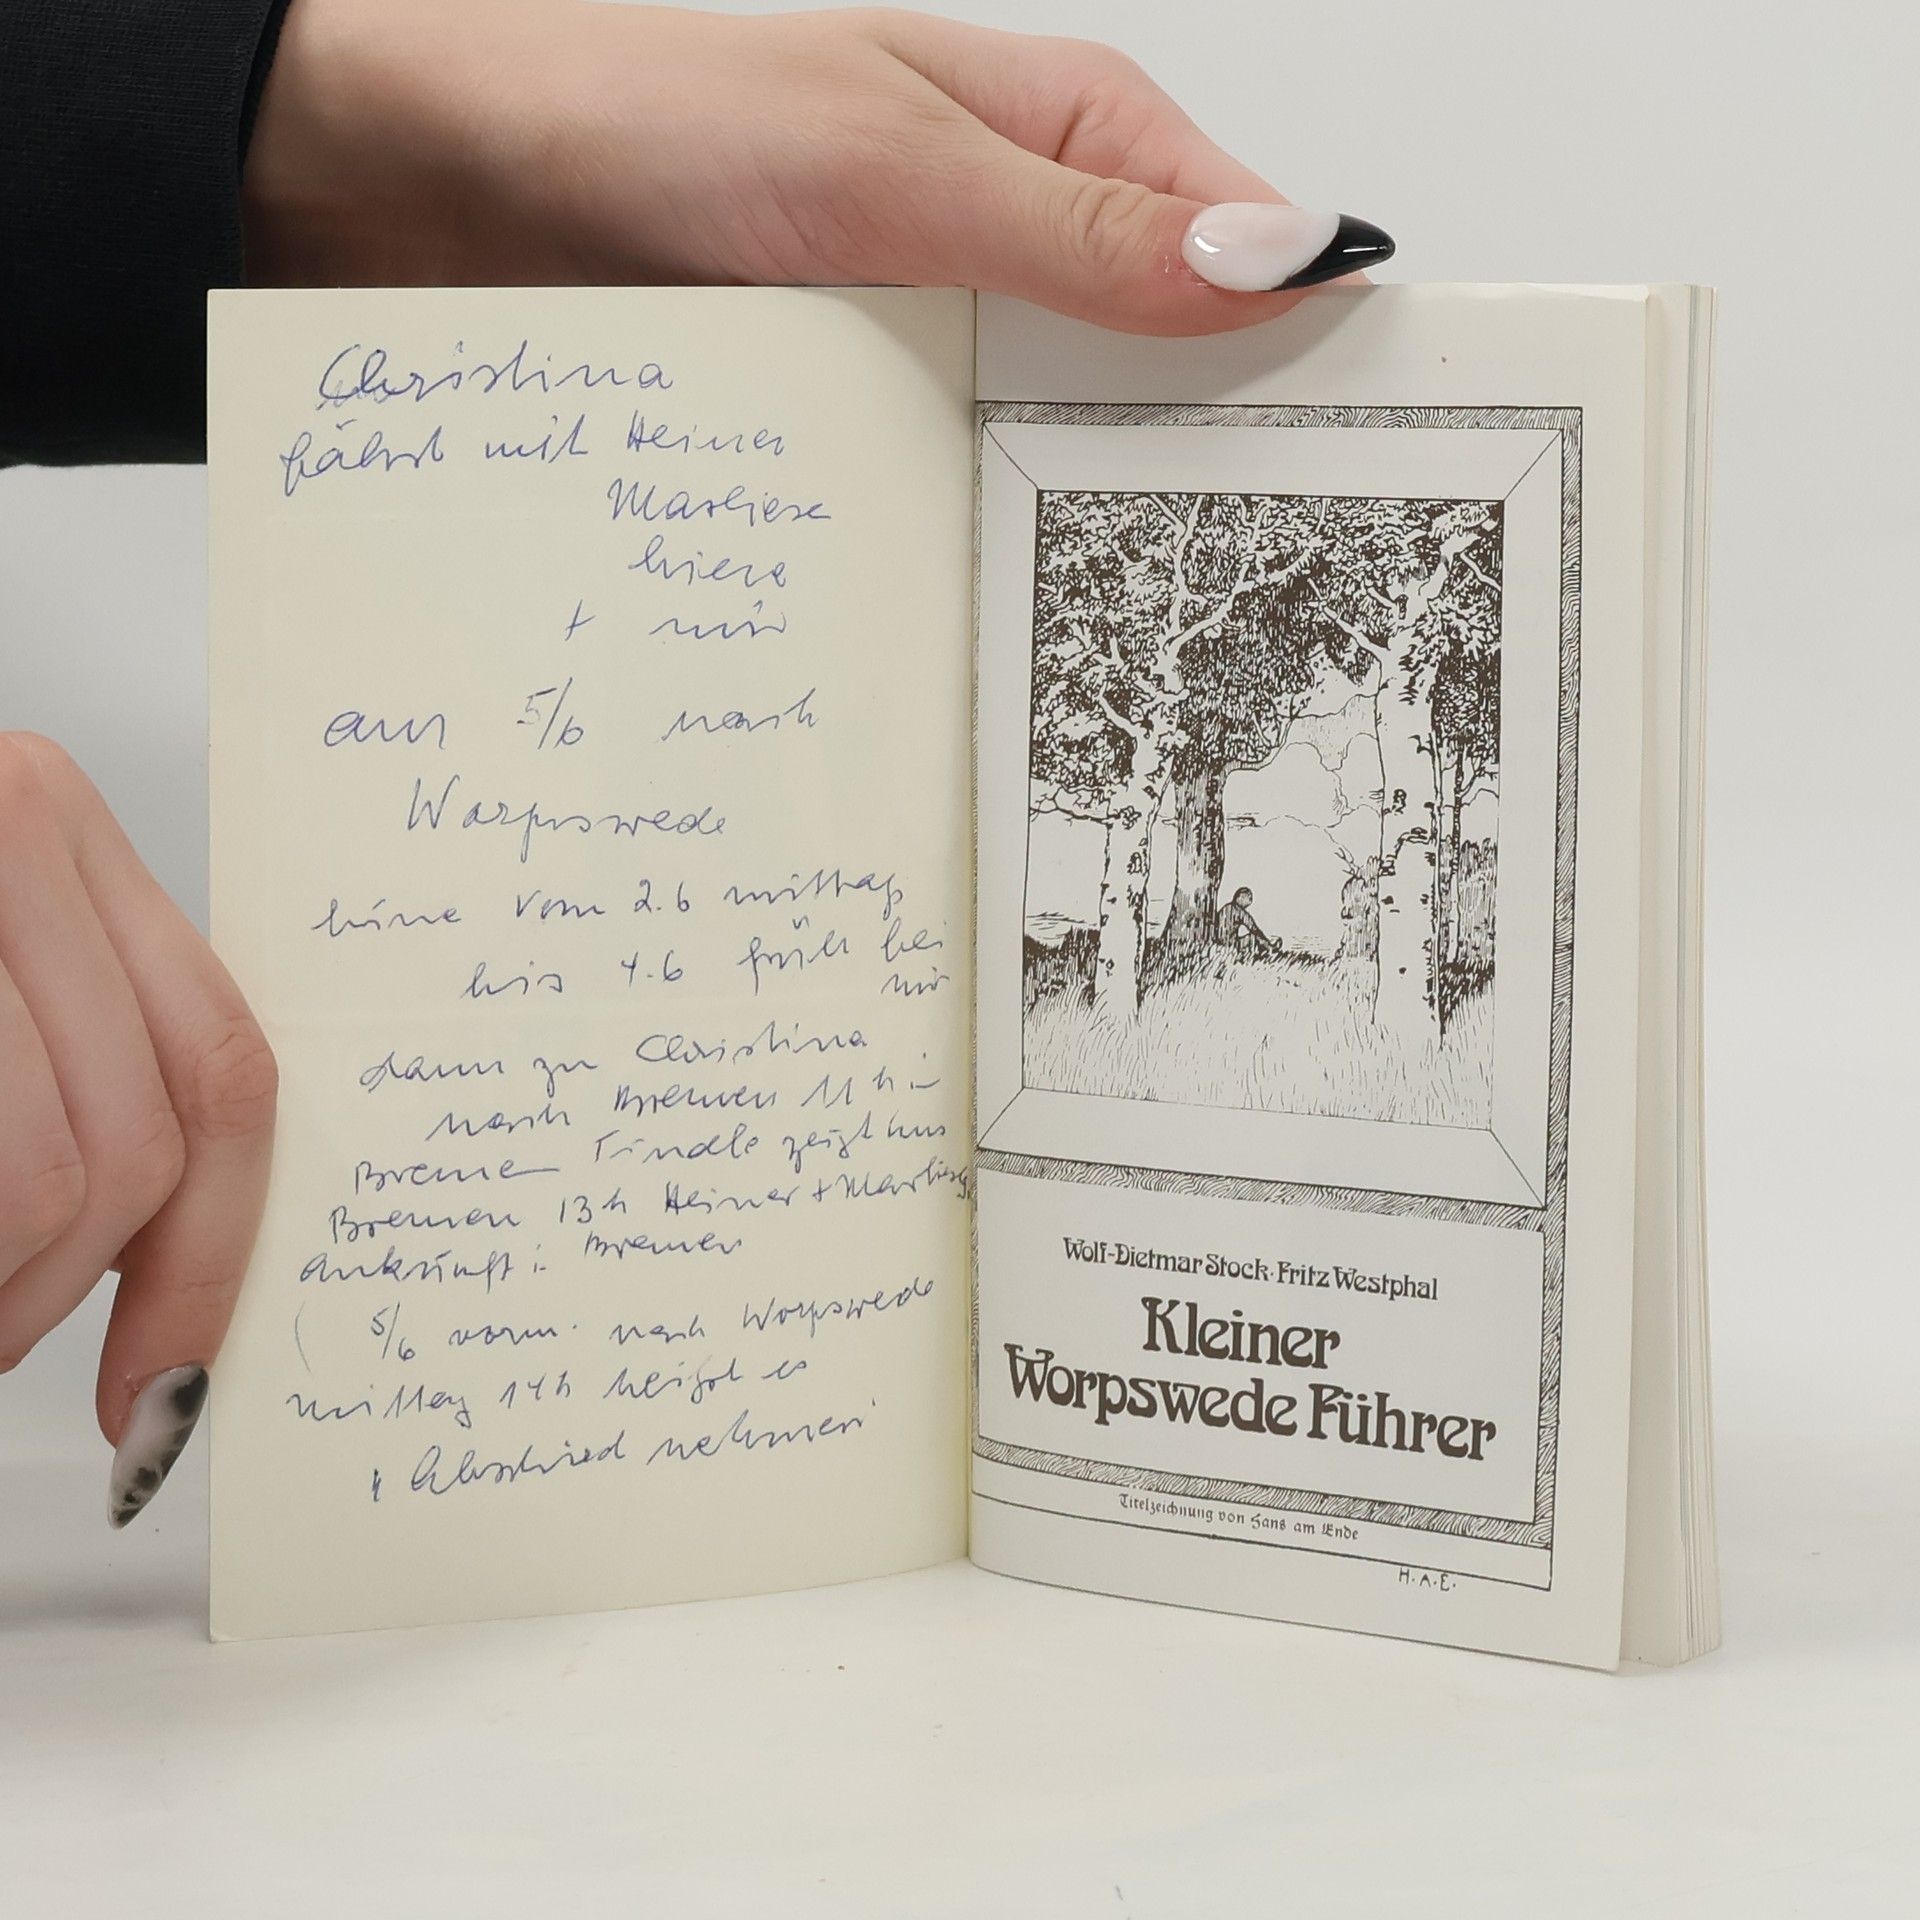 Christina
fährt mit Heiner
Marliese
+ mir
am 5/6 nach
Worpswede
vom 2.6 mittags
bis 4.6 früh bei
mir
dann zu Christina
nach Bremen 11 h in
Bremen zeigt uns
Bremen 13 h Heiner + Marliese
Ankunft in Bremen
( 5/6 vorm. nach Worpswede
mittag 14 h heißt es
" Abschied nehmen
Wolf-Dietmar Stock·Fritz Westphal
Kleiner
Worpswede Führer
Titelzeichnung von Hans am Ende
H.A.E.